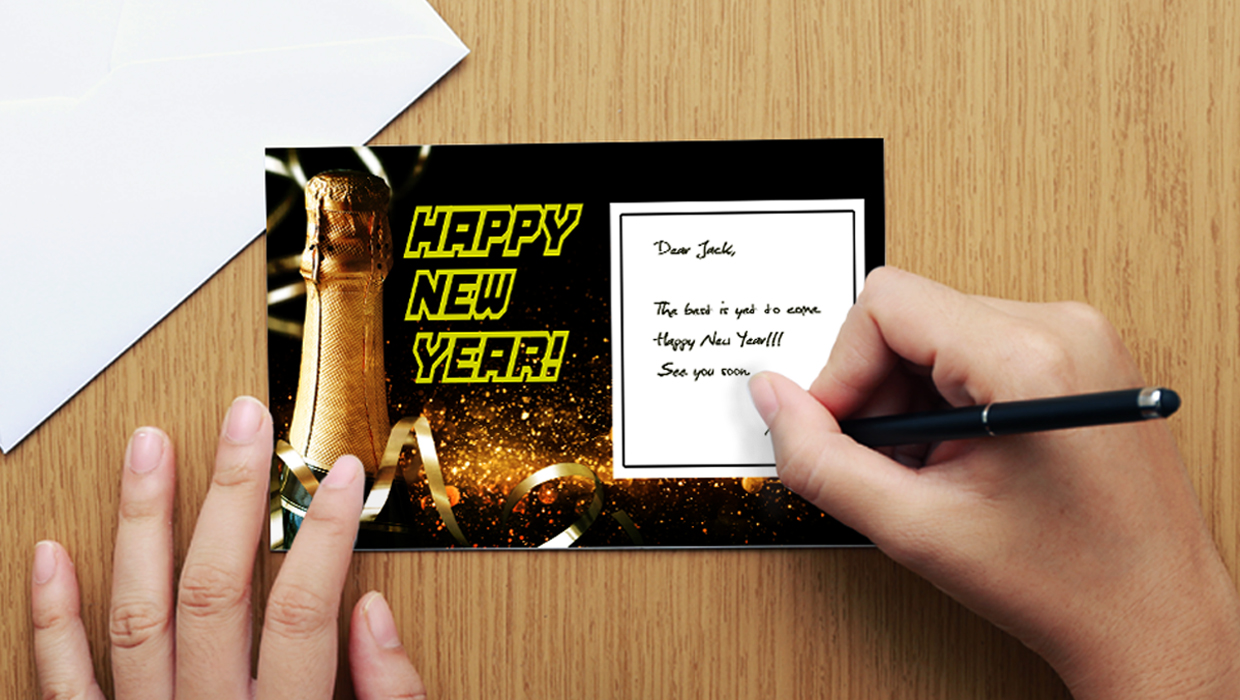 HAPPY
NEW
YEAR!
Dear Jack,
The best is yet to come
Happy New Year!!!
See you soon